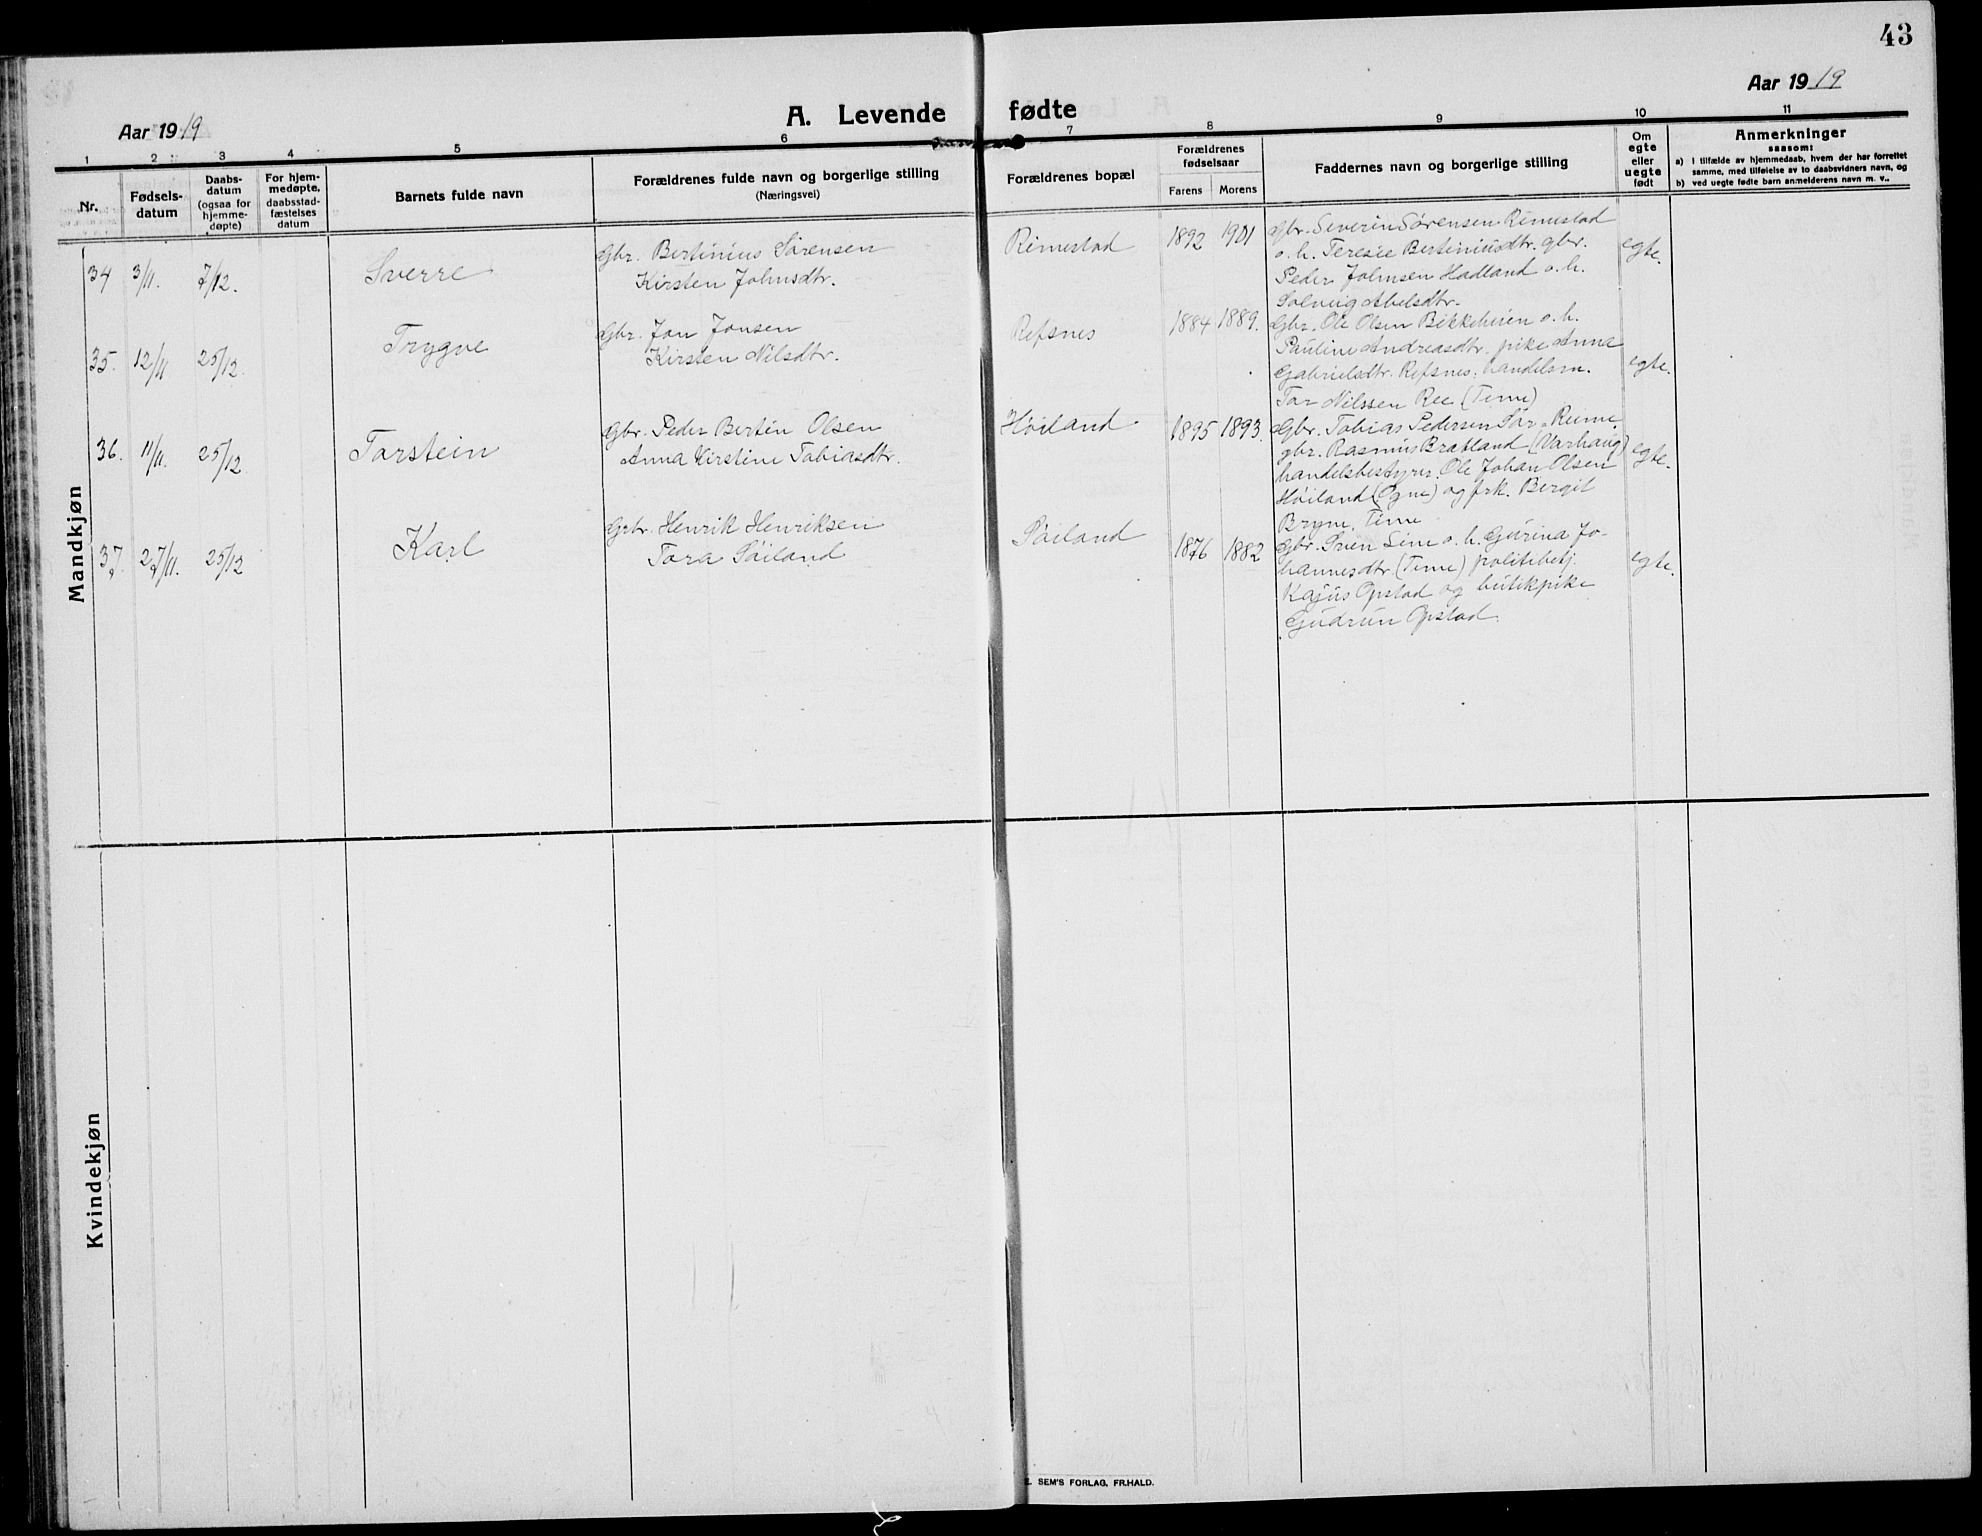 43
Aar 1919
A. Levende fødte
Aar 1919
1 2 3 4 5 6 7 8 9 10 11
Nr.
Fødsels-
datum
Daabs-
datum
(ogsaa for
hjemme-
døpte)
For hjem-
medøpte,
daabsstad-
fæstelses
datum
Barnets fulde navn
Forældrenes fulde navn og borgerlige stilling
(Næringsvei)
Forældrenes bopæl
Forældrenes
fødselsaar
Farens Morens
Faddernes navn og borgerlige stilling
Om
egte
eller
uegte
født
Anmerkninger
saasom:
a) I tilfælde av hjemmedaab, hvem der har forrettet
samme, med tilføielse av to daabsvidners navn, og
b) ved uegte fødte barn anmelderens navn m. v..
Mandkjøn
34 3/11. 7/12. Sverre
Gbr. Bertinius Sørensen
Kirsten Johnsdtr.
Rimestad 1892 1901
Gbr. Severin Sørensen Rimestad
o. h. Teresie Bertiniusdtr. gbr.
Peder Johnsen Hadland o. h.
Solveig Abelsdtr.
egte.
35. 12/11 25/12. Trygve
Gbr. Jon Jonsen
Kirsten Nilsdtr.
Refsnes 1884 1889.
Gbr. Ole Olsen Bikkeheien o. h.
Pauline Andreasdtr. pike Anna
Gabrielsdtr. Refsnes: handelsm.
Tor Nilssen Ree (Time)
egte.
36. 11/11. 25/12 Torstein
Gbr. Peder Bertin Olsen
Anna Kirstine Tobiasdtr.
Høiland 1895 1893.
Gbr. Tobias Pedersen Sør-Reime
gbr. Rasmus Bratland (Varhaug)
handelsbestyrer Ole Johan Olsen
Høiland (Ogne) og frk. Bergit
Bryne, Time
egte.
37. 27/11. 25/12 Karl
Gbr. Henrik Henriksen
Tora Søiland
Søiland 1876 1882
Gbr. Svien Lime o. h. Gurina Jo-
hannesdtr (Time) politibetj.
Kajus Opstad og butikpike
Gudrun Opstad.
egte.
Kvindekjøn
E. SEM'S FORLAG, FR.HALD.